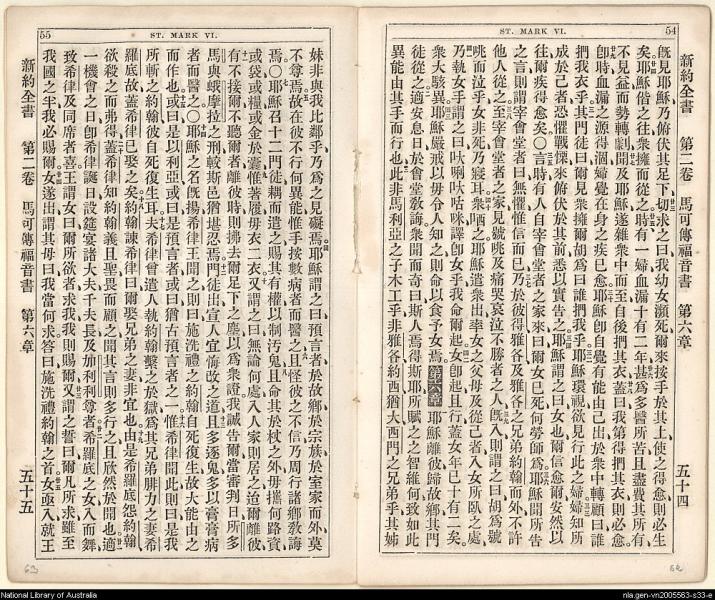 54
ST. MARK VI.
新約全書 第二卷 馬可傳福音書 第六章 五十四
旣見耶穌乃俯伏其足下切求之曰我幼女瀕死爾來按手於其上使之得愈則必生
矣耶穌偕之往衆擁而從之時有一婦血漏十有二年甚爲多醫所苦且盡費其所有
不見益而勢轉劇聞及耶穌遂雜衆中而至自後捫其衣蓋曰我第得捫其衣則必愈
卽時血漏之源得涸婦覺在身之疾已愈耶穌卽自覺有能由己出於衆中轉顧曰誰
捫我衣乎其門徒曰爾見衆擁爾胡爲曰誰捫我乎耶穌環視欲見行此之婦婦知所
成於己者恐懼戰慄來俯伏於其前悉以實告之耶穌謂之曰女也爾信愈爾安然以
往爾疾得愈矣〇言時有人自宰會堂者之家來曰爾女已死何勞師爲耶穌聞所告
之言則謂宰會堂者曰無懼惟信而已乃於彼得雅各及雅各之兄弟約翰而外不許
他人從之至宰會堂者之家見號咷及痛哭哀泣不勝者之人旣入則謂之曰胡爲號
咷而泣乎女非死乃寢耳衆哂之耶穌遣衆出率女之父母及從己者入女所臥之處
乃執女手謂之曰呔唎呔咕咪譯卽女乎我命爾起女卽起且行蓋女年已十有二矣
衆大駭異耶穌嚴戒以毋令人知之則命以食予女焉第六章耶穌離彼歸故鄉其門
徒從之適安息日於會堂敎誨衆聞而奇曰斯人焉得斯耶所賦之之智維何致如此
異能由其手而行也此非馬利亞之子木工乎非雅各約西猶大西門之兄弟乎其姊
55
ST. MARK VI.
妹非與我比鄰乎乃爲之見礙焉耶穌謂之曰預言者於故鄉於宗族於室家而外莫
不尊焉故在彼不行何異能惟手按數病者而醫之且怪彼之不信乃周行諸鄉敎誨
焉〇耶穌召十二門徒耦而遣之賜其有權以制汚鬼且命其於杖之外毋攜何路資
或袋或糧或金於囊惟著履毋衣二衣又謂之曰無論何處入人家則居之迨爾離彼
有不接爾不聽爾者離彼時則拂去爾足下之塵以爲衆證我誠告爾當審判日所多
馬與蛾摩拉之刑較斯邑猶堪忍焉門徒出宣人宜悔改之道且多逐鬼多以膏膏病
者而醫之〇耶穌之名旣揚希律王聞之則曰施洗禮之約翰自死而復生故大能由之
而作也或曰是以利亞或曰是預言者或曰猶古預言者之一惟希律聞此則曰是我
所斬之約翰彼自死復生耳夫希律曾遣人執約翰繫之於獄爲其兄弟腓力之妻希
羅底故蓋希律已娶之矣約翰諫希律曰爾娶兄弟之妻非宜也由是希羅底怨約翰
欲殺之而弗得蓋希律知約翰義且聖畏而顧之聞其言則多行之且欣然於聞也適
一機會之日卽希律誕日設筵宴諸大夫千夫長及加利利尊者希羅底之女入而舞
致希律及同席者喜王謂女曰爾所欲者求我我則賜爾又謂之誓曰爾凡所求雖至
我國之半我必賜爾女遂出謂其母曰我當何求答曰施洗禮約翰之首女亟入就王
新約全書 第二卷 馬可傳福音書 第六章 五十五
63
62
National Library of Australia
nla.gen-vn2005563-s33-e